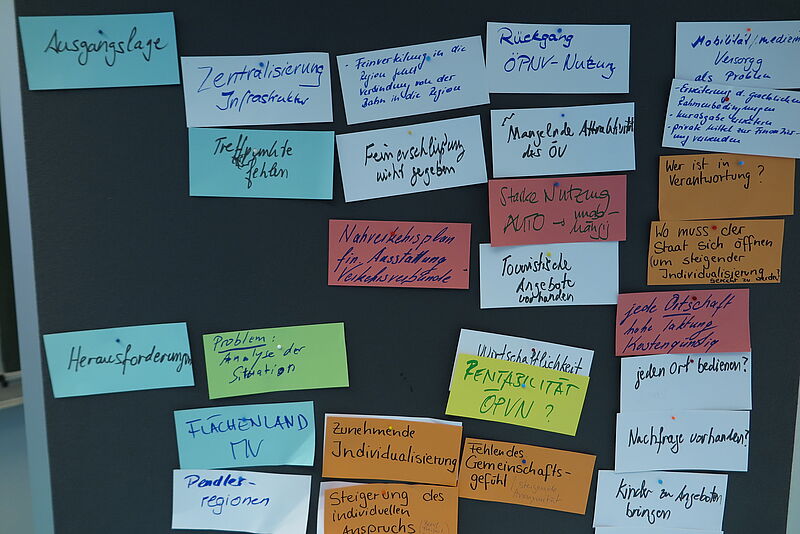 Ausgangslage
Zentralisierung
Infrastruktur
Treffpunkte
fehlen
- Feinverteilung in die
Region plus
Verbindung von der
Bahn in die Region
Feinerschließung
nicht gegeben
Rückgang
ÖPNV-Nutzung
Mangelnde Attraktivität
des ÖV
Starke Nutzung
AUTO → unab-
hängig
Touristische
Angebote
vorhanden
Mobilität/medizin
Versorgg
als Problem
- Erweiterung d. gesetzlichen
Rahmenbedingungen
- kurabgabe erweitern
- private Mittel zur Finanzier-
ung verwenden
Wer ist in
Verantwortung?
Wo muss der
Staat sich öffnen
(um steigender
Individualisierung
gerecht zu werden?
Nahverkehrsplan
fin. Ausstattung
Verkehrsverbünde
jede Ortschaft
hohe Taktung
Kostengünstig
jeden Ort bedienen?
Nachfrage vorhanden?
Kinder zu Angeboten
bringen
Herausforderungen
Problem:
Analyse der
Situation
FLÄCHENLAND
MV
Pendler-
regionen
Zunehmende
Individualisierung
Steigerung des
individuellen
Anspruchs
Wirtschaftlichkeit
RENTABILITÄT
ÖPVN?
Fehlen des
Gemeinschafts-
gefühl
steigende